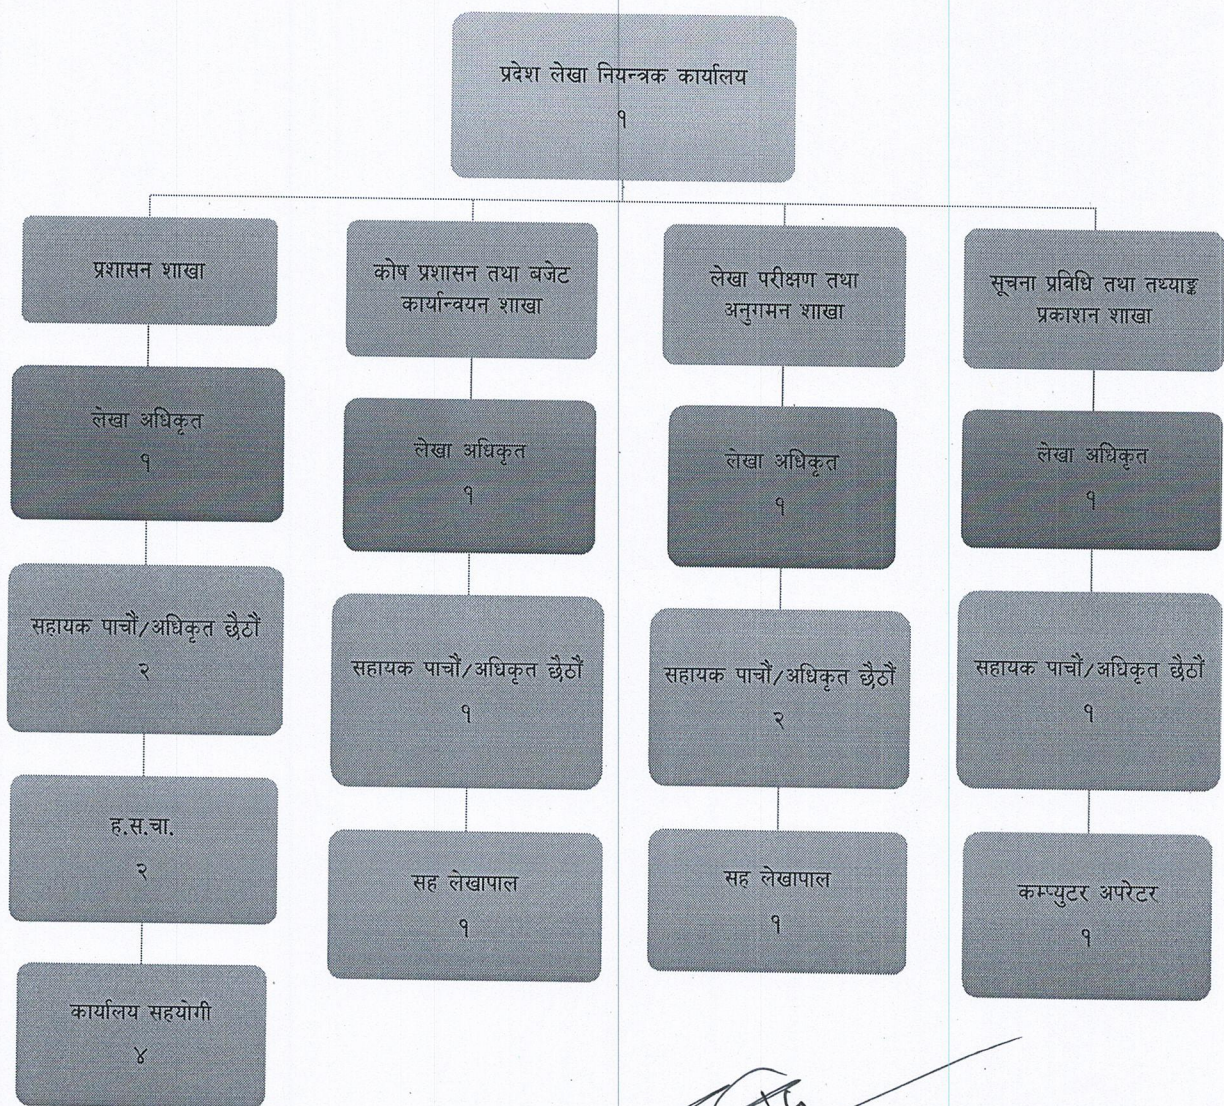 प्रदेश लेखा नियन्त्रक कार्यालय
१
प्रशासन शाखा
लेखा अधिकृत
१
सहायक पाचौं/अधिकृत छैठौं
२
ह.स.चा.
२
कार्यालय सहयोगी
४
कोष प्रशासन तथा बजेट
कार्यान्वयन शाखा
लेखा अधिकृत
१
सहायक पाचौं/अधिकृत छैठौं
१
सह लेखापाल
१
लेखा परीक्षण तथा
अनुगमन शाखा
लेखा अधिकृत
१
सहायक पाचौं/अधिकृत छैठौं
२
सह लेखापाल
१
सूचना प्रविधि तथा तथ्याङ्क
प्रकाशन शाखा
लेखा अधिकृत
१
सहायक पाचौं/अधिकृत छैठौं
१
कम्प्युटर अपरेटर
१